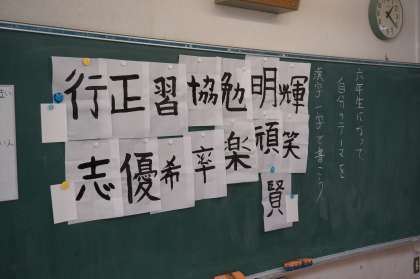 六年生になって、
自分のテーマを
漢字一字で書こう
行正習協勉明輝
志優希率楽頑笑
賢